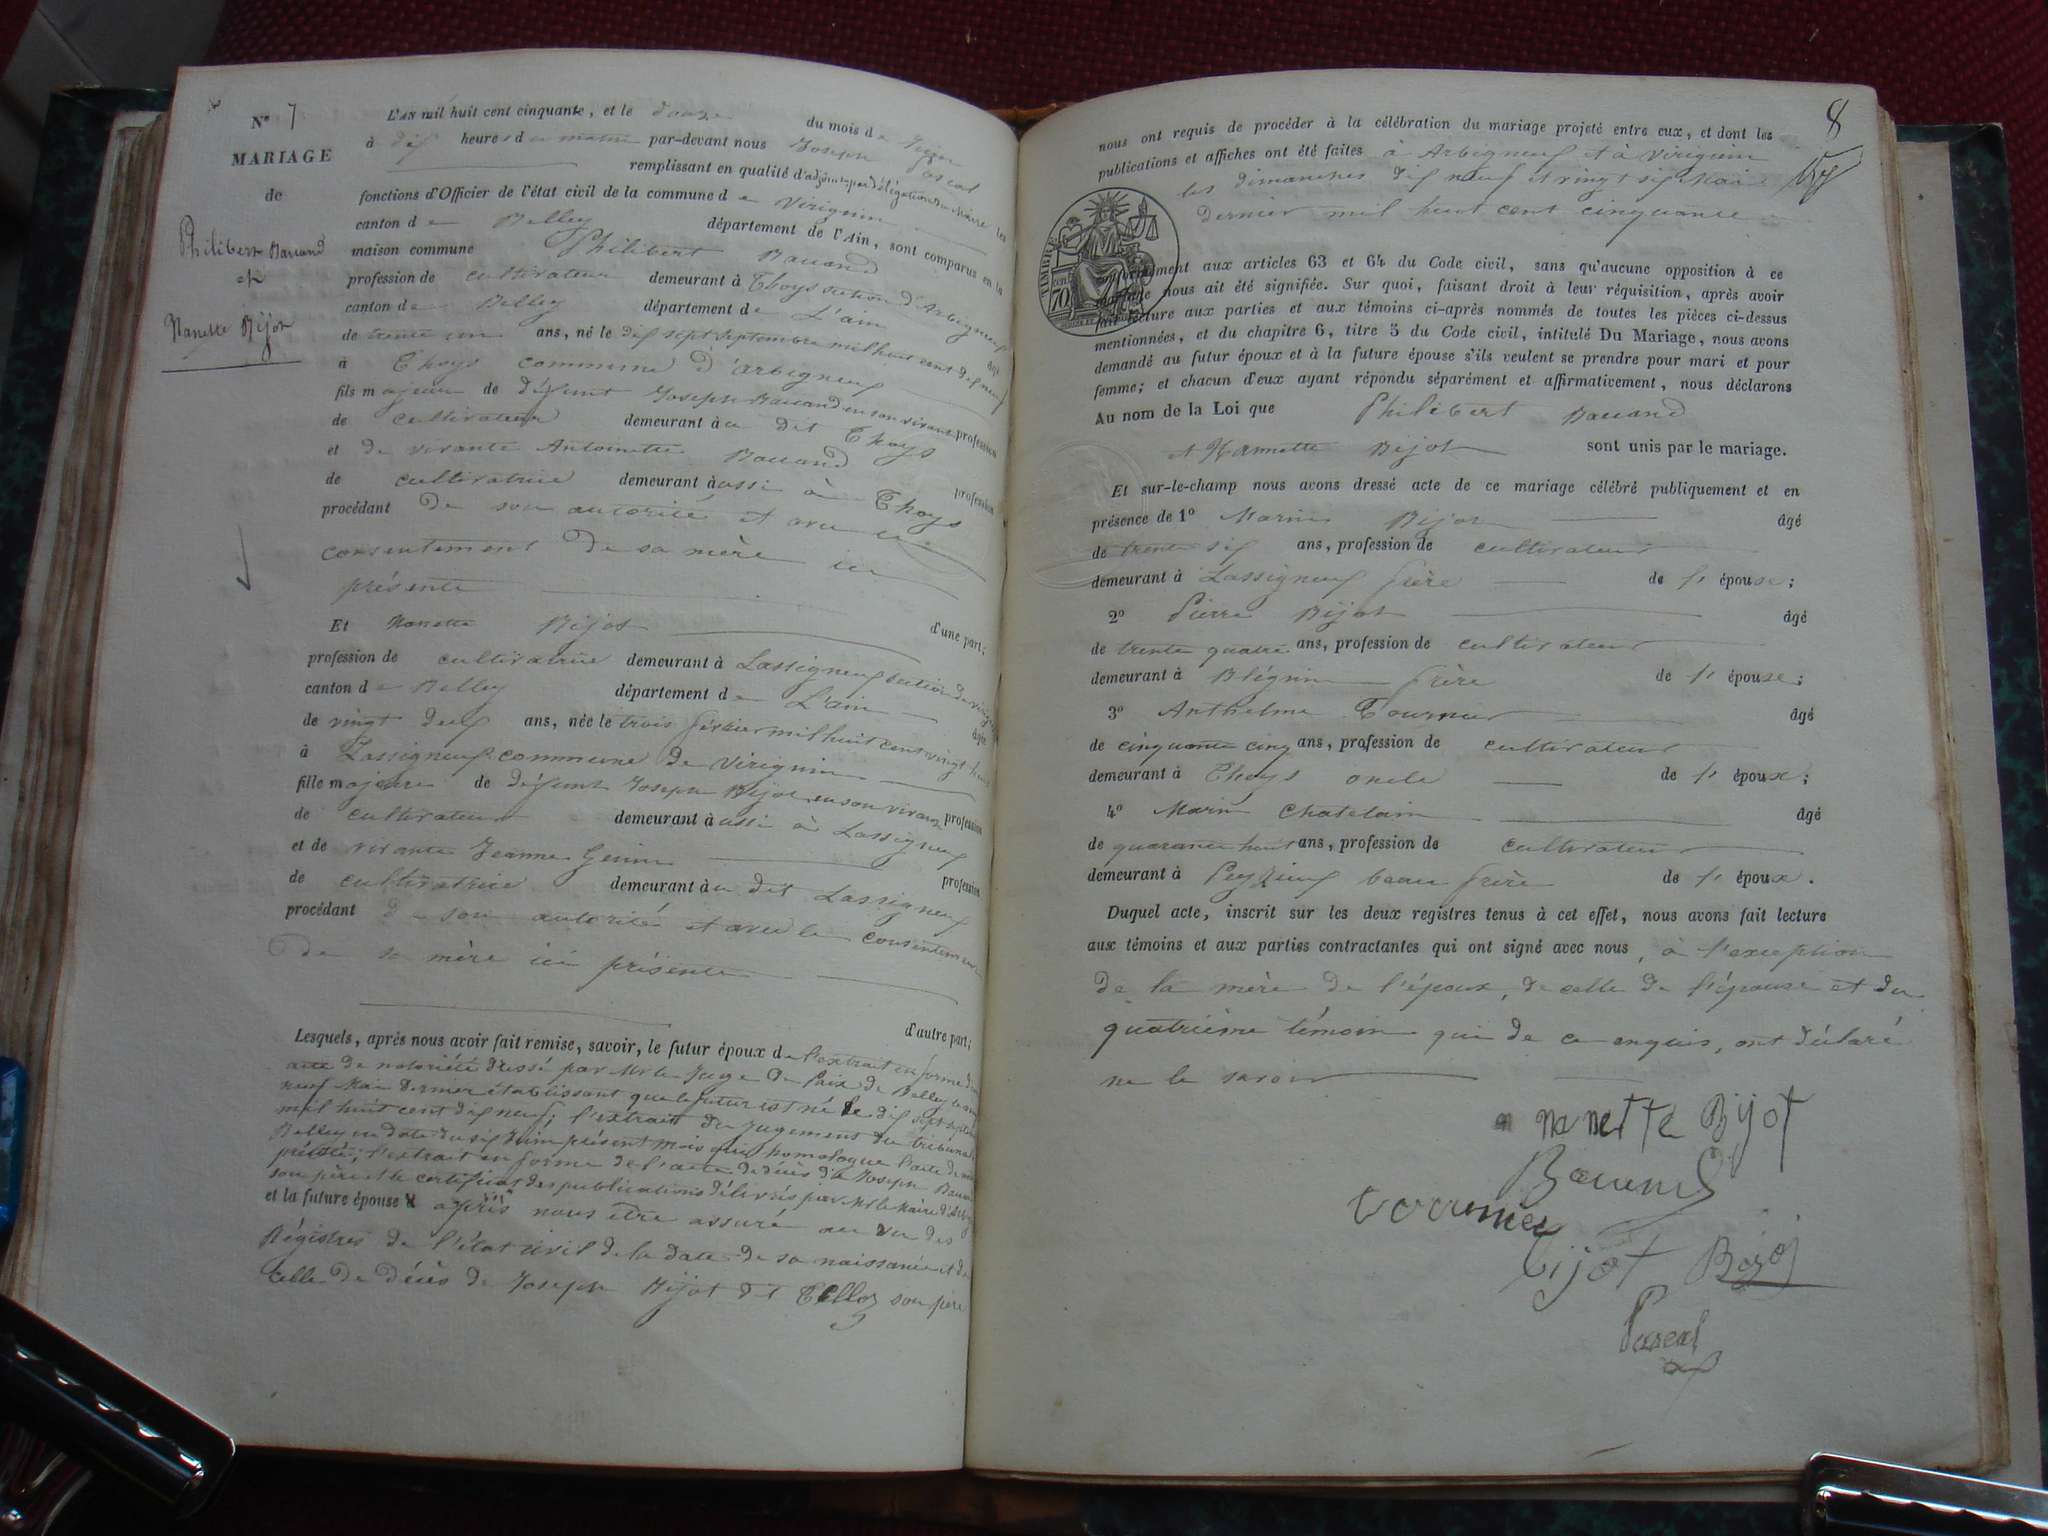 N° 7
MARIAGE
de
Philibert Bauand
et
Nanette Bijot
L'AN mil huit cent cinquante, et le douze du mois de Juin
à dix heures du matin par-devant nous Joseph Pascal
remplissant en qualité d'adjoint par délégation du Maire les
fonctions d'Officier de l'état civil de la commune de Virignin
canton de Belley département de l'Ain, sont comparus en la
maison commune Philibert Bauand
profession de cultivateur demeurant à Thoys section d'Arbigneux
canton de Belley département de L'ain âgé
de trente un ans, né le dix sept septembre mil huit cent dix neuf
à Thoys commune d'arbigneux
fils majeur de défunt Joseph Bauand en son vivant profession
de cultivateur demeurant au dit Thoys
et de vivante Antoinette Bauand profession
de cultivatrice demeurant aussi à Thoys
procédant de son autorité et avec le
consentement de sa mère ici
présente
d'une part;
Et Nanette Bijot
profession de cultivatrice demeurant à Lassigneux section de
canton de Belley département de L'ain âgée
de vingt deux ans, née le trois février mil huit cent vingt huit
à Lassigneux commune de Virignin
fille majeure de défunt Joseph Bijot en son vivant profession
de cultivateur demeurant aussi à Lassigneux
et de vivante Jeanne profession
de cultivatrice demeurant au dit Lassigneux
procédant de son autorité et avec le consentement
de sa mère ici présente
d'autre part;
Lesquels, après nous avoir fait remise, savoir, le futur époux de l'extrait en forme d'un
acte de notoriété dressé par Mr le Juge de Paix de Belley
neuf Mai dernier établissant que le futur est né le dix sept
mil huit cent dix neuf; l'extrait du Jugement du tribunal
Belley en date du six Juin présent mois qui homologue l'acte de
précité; l'extrait en forme de l'acte de décès de Joseph Bauand
son père et le certificat des publications délivrés par Mr le Maire d'
et la future épouse après nous être assuré au vu des
Régistres de l'état civil de la date de sa naissance et de
celle de décès de Joseph Bijot dit son père
8
nous ont requis de procéder à la célébration du mariage projeté entre eux, et dont les
publications et affiches ont été faites à Arbigneux et à Virignin
les dimanches dix neuf et vingt six Mai
dernier mil huit cent cinquante
TIMBRE
70
conformément aux articles 63 et 64 du Code civil, sans qu'aucune opposition à ce
mariage nous ait été signifiée. Sur quoi, faisant droit à leur réquisition, après avoir
fait lecture aux parties et aux témoins ci-après nommés de toutes les pièces ci-dessus
mentionnées, et du chapitre 6, titre 5 du Code civil, intitulé Du Mariage, nous avons
demandé au futur époux et à la future épouse s'ils veulent se prendre pour mari et pour
femme; et chacun d'eux ayant répondu séparément et affirmativement, nous déclarons
Au nom de la Loi que Philibert Bauand
et Nannette Bijot sont unis par le mariage.
Et sur-le-champ nous avons dressé acte de ce mariage célébré publiquement et en
présence de 1° Marin Bijot âgé
de trente six ans, profession de cultivateur
demeurant à Lassigneux frère de l' épouse;
2° Pierre Bijot âgé
de trente quatre ans, profession de cultivateur
demeurant à Blégnin frère de l' épouse;
3° Anthelme Tournier âgé
de cinquante cinq ans, profession de cultivateur
demeurant à Thoys oncle de l' époux;
4° Marin Chatelain âgé
de quarante huit ans, profession de cultivateur
demeurant à Peyzieux beau frère de l' époux.
Duquel acte, inscrit sur les deux registres tenus à cet effet, nous avons fait lecture
aux témoins et aux parties contractantes qui ont signé avec nous, à l'exception
de la mère de l'époux, de celle de l'épouse et du
quatrième témoin qui de ce enquis, ont déclaré
ne le savoir
nanette Bijot
Bauand
tournier
Bijot Bijot
Pascal